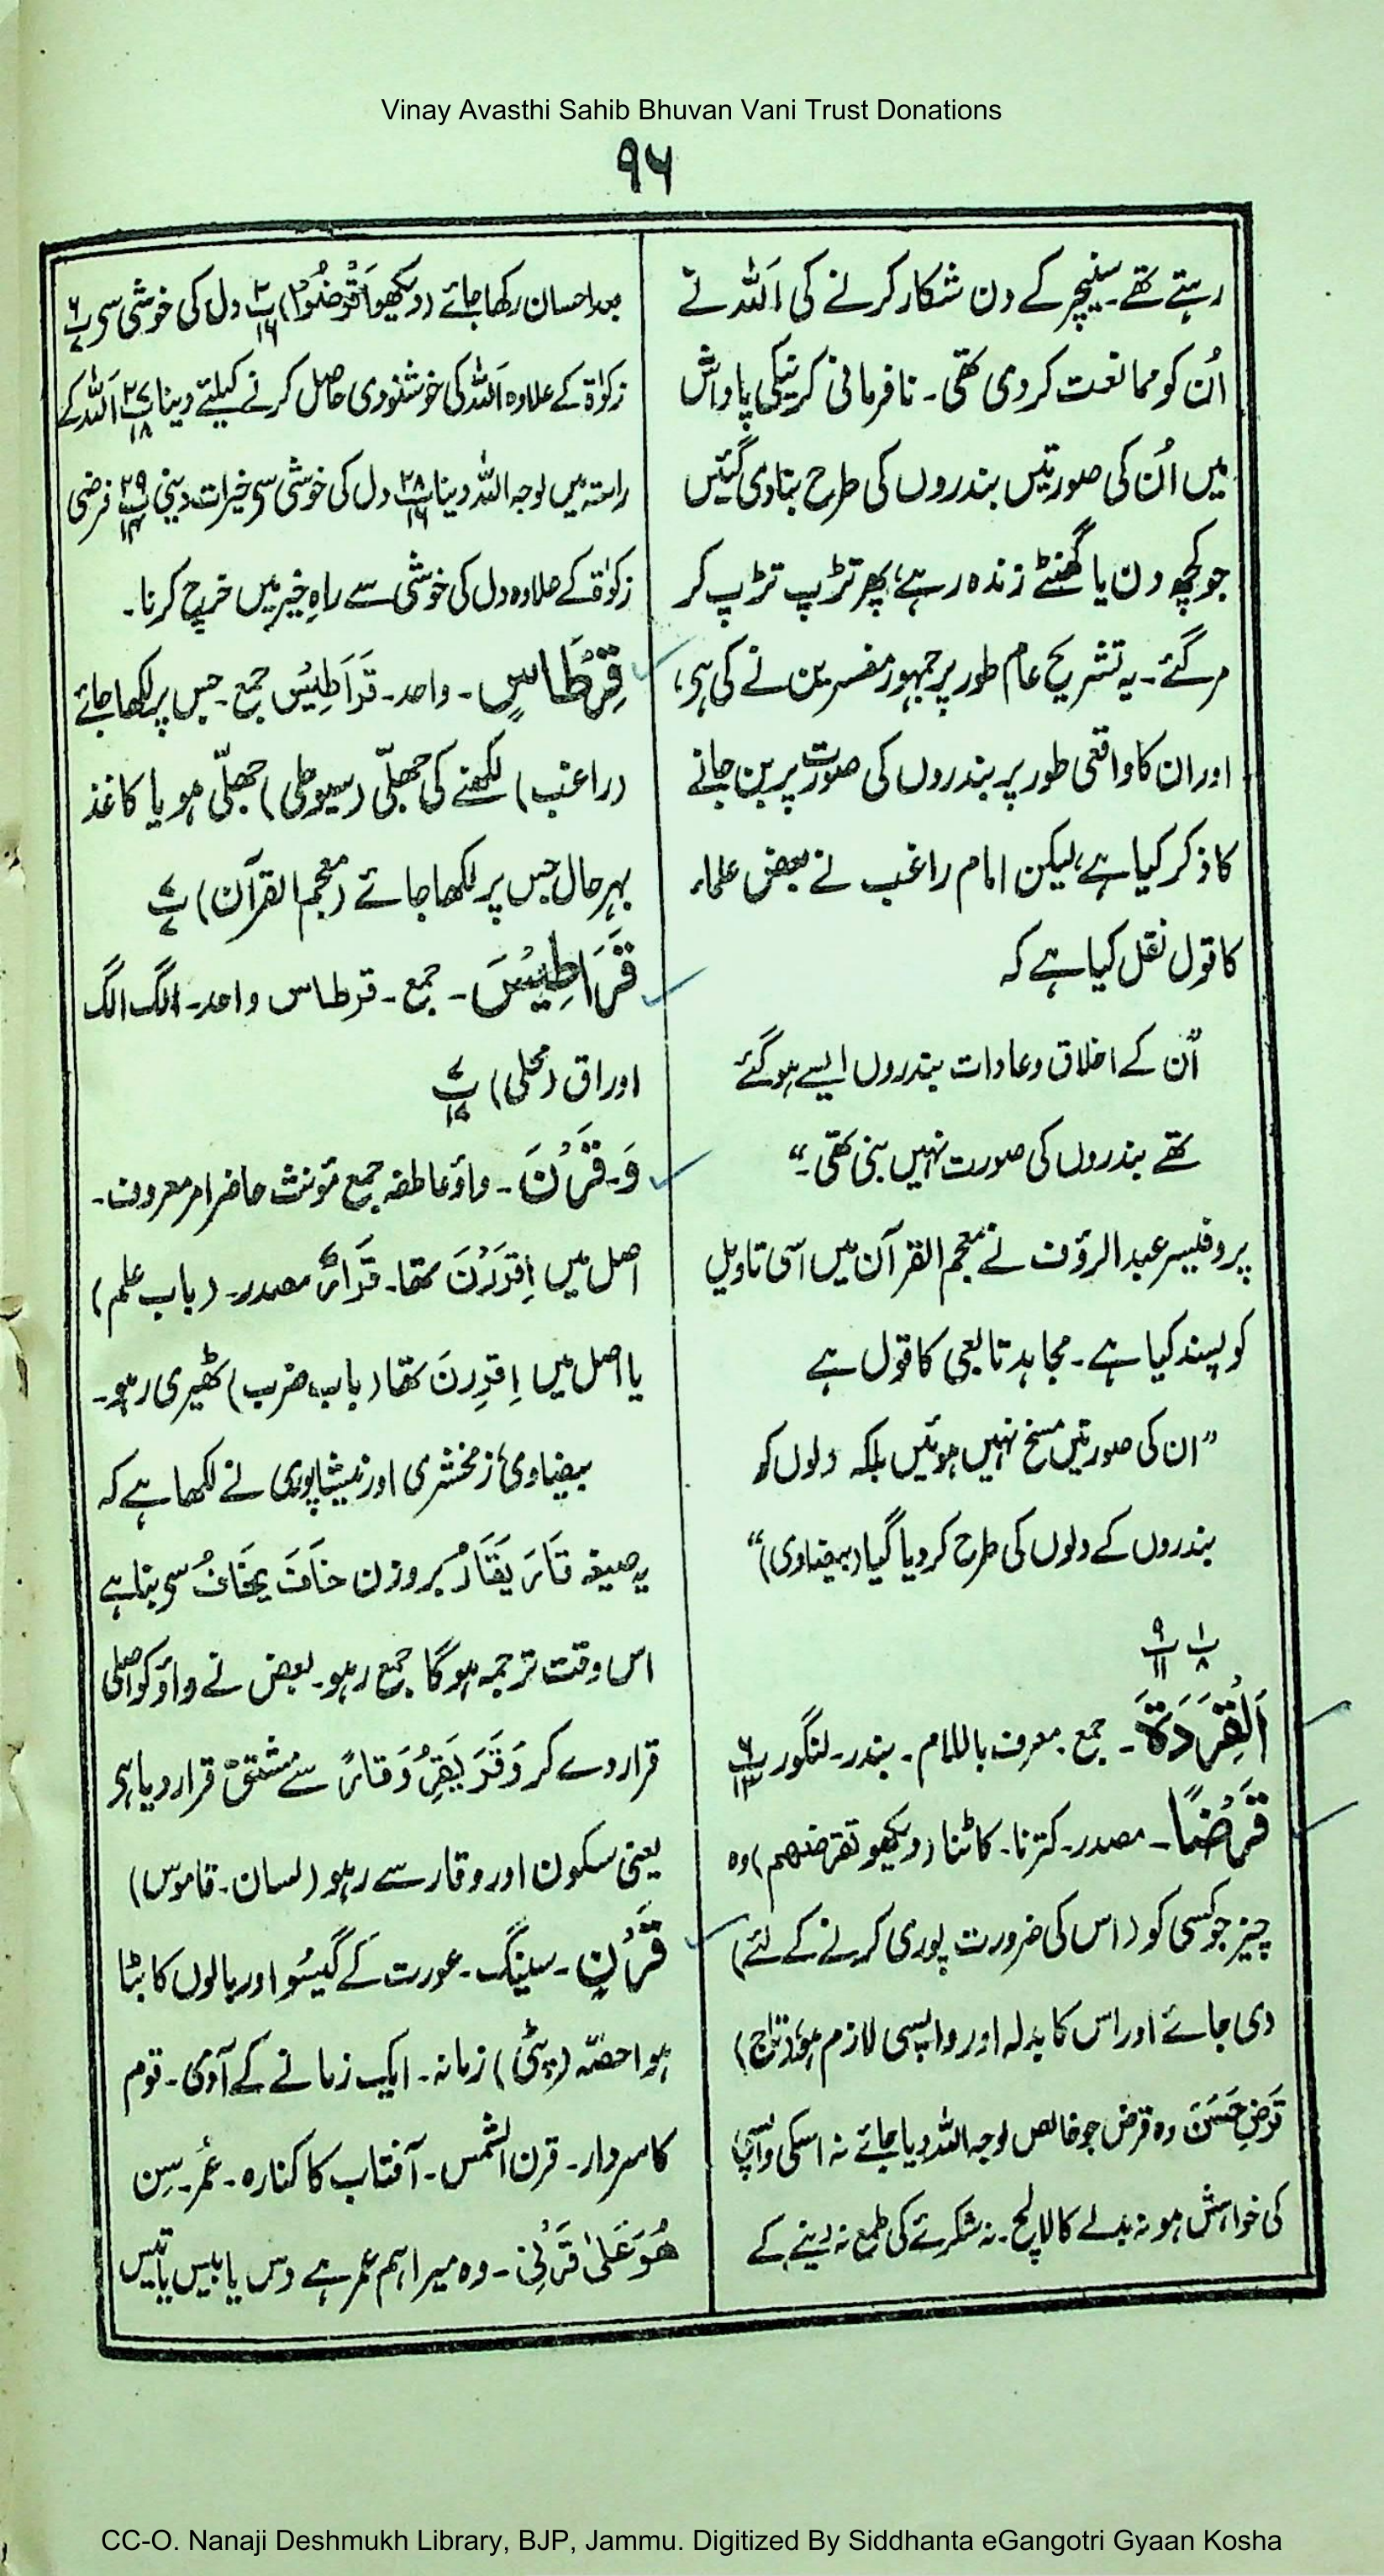 Vinay Avasthi Sahib Bhuvan Vani Trust Donations
۹۶
رہتے تھے۔ سنیچر کے دن شکار کرنے کی اَللہ نے
اُن کو ممانعت کر دی تھی۔ نافرمانی کرنیکی پاداش
میں اُن کی صورتیں بندروں کی طرح بنادی گئیں
جو کچھ دن یا گھنٹے زندہ رہے، پھر تڑپ تڑپ کر
مر گئے۔ یہ تشریح عام طور پر جمہور مفسرین نے کی ہی،
اور ان کا واقعی طور پر بندروں کی صورت پر بن جانے
کا ذکر کیا ہے، لیکن امام راغب نے بعض علماء
کا قول نقل کیا ہے کہ
”اُن کے اخلاق و عادات بندروں ایسے ہو گئے
تھے بندروں کی صورت نہیں بنی تھی۔“
پروفیسر عبد الرؤف نے معجم القرآن میں اسی تاویل
کو پسند کیا ہے۔ مجاہد تابعی کا قول ہے
”ان کی صورتیں مسخ نہیں ہوئیں بلکہ دلوں کو
بندروں کے دلوں کی طرح کر دیا گیا (بیضاوی)“
پ۱ ۸ پ۹ ۱۱
اَلْقِرَدَةَ۔ جمع معرف باللام۔ بندر۔ لنگور پ۶ ۱۳
قَرْضًا۔ مصدر۔ کترنا۔ کاٹنا (دیکھو تقرضھم) وہ
چیز جو کسی کو (اس کی ضرورت پوری کرنے کے لئے)
دی جائے اور اس کا بدلہ اور واپسی لازم ہو (تاج)
قَرضِ حَسَنَ وہ قرض جو خالص لوجہ اللہ دیا جائے نہ اسکی واپسی
کی خواہش ہو نہ بدلے کا لالچ۔ نہ شکرئے کی طمع نہ دینے کے
بعد احسان رکھا جائے (دیکھو اَقْرَضُوا) پ۲ ۱۶ دل کی خوشی سی پ۶ ۷
زکوٰۃ کے علاوہ اَللہ کی خوشنودی حاصل کرنے کیلئے دینا پ۲۷ ۱۸ اَللہ کے
راستہ میں لوجہ اللہ دینا پ۲۸ ۱۶ دل کی خوشی سی خیرات دینی پ۲۹ ۱۴ فرضی
زکوٰۃ کے علاوہ دل کی خوشی سے راہِ خیر میں خرچ کرنا۔
قِرْطَاسٍ۔ واحد۔ قَرَاطِیْسُ جمع۔ جس پر لکھا جائے
(راغب) لکھنے کی جھلّی (سیوطی) جھلّی ہو یا کاغذ
بہر حال جس پر لکھا جائے (معجم القرآن) پ۷ ۷
قَرَاطِیْسَ۔ جمع۔ قرطاس واحد۔ الگ الگ
اوراق (محلی) پ۷ ۱۷
وَ۔ قَرْنَ۔ واؤ عاطفہ جمع مؤنث حاضر امر معروف۔
اصل میں اِقْرَرْنَ تھا۔ قَرَارٌ مصدر۔ (باب علم)
یا اصل میں اِقْرِرنَ تھا (باب ضرب) ٹھیری رہو۔
بیضاوی، زمخشری اور نیشاپوری نے لکھا ہے کہ
یہ صیغہ قَارَ یَقَارُ بروزن خَافَ یَخَافُ سی بنا ہے
اس وقت ترجمہ ہوگا جمع رہو۔ بعض نے واؤ کو اصلی
قرار دے کر وَقَرَ یَقِرُ وَقَارً سے مشتق قرار دیا ہی
یعنی سکون اور وقار سے رہو (لسان۔ قاموس)
قَرْنٍ۔ سینگ۔ عورت کے گیسُو اور بالوں کا بٹا
ہوا حصّہ (پٹی) زمانہ۔ ایک زمانے کے آدمی۔ قوم
کا سردار۔ قرن الشمس۔ آفتاب کا کنارہ۔ عُمر۔ سِن
ھُوَ عَلیٰ قَرْنِی۔ وہ میرا ہم عمر ہے دس یا بیس یا تیس
CC-O. Nanaji Deshmukh Library, BJP, Jammu. Digitized By Siddhanta eGangotri Gyaan Kosha